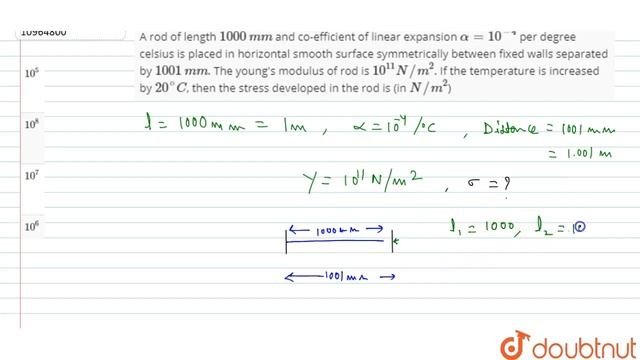 10964800
A rod of length 1000 mm and co-efficient of linear expansion α = 10⁻⁴ per degree
celsius is placed in horizontal smooth surface symmetrically between fixed walls separated
by 1001 mm. The young's modulus of rod is 10¹¹ N/m². If the temperature is increased
by 20°C, then the stress developed in the rod is (in N/m²)
10⁵
10⁸
10⁷
10⁶
l = 1000 mm = 1m , α = 10⁻⁴ /°C , Distance = 1001 mm
= 1.001 m
Y = 10¹¹ N/m² , σ = ?
1000
l₁ = 1000, l₂ = 10
1001 mm
doubtnut